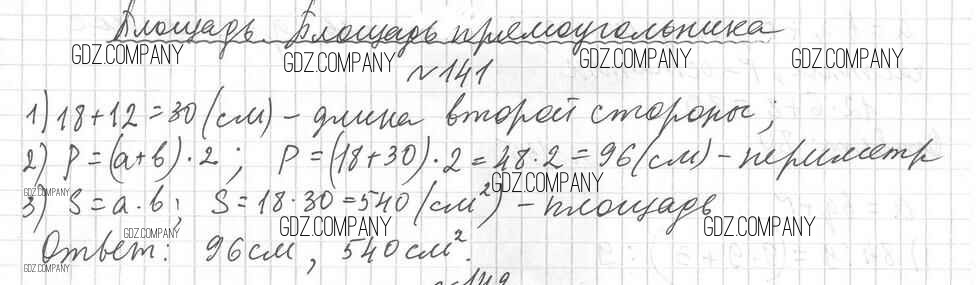 Площадь. Площадь прямоугольника
GDZ.COMPANY GDZ.COMPANY GDZ.COMPANY GDZ.COMPANY
№141
1) 18+12=30 (см) - длина второй стороны;
2) P=(a+b)·2; P=(18+30)·2=48·2=96 (см) - периметр
GDZ.COMPANY GDZ.COMPANY
3) S=a·b; S=18·30=540 (см²) - площадь
GDZ.COMPANY GDZ.COMPANY GDZ.COMPANY
Ответ: 96см, 540см².
GDZ.COMPANY